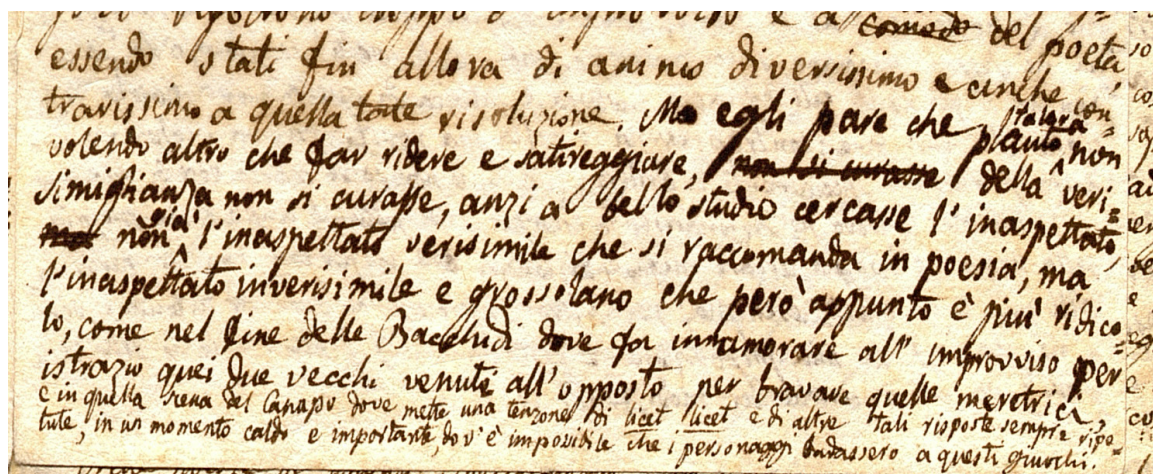 comodo del poeta
essendo stati fin allora di animo diversissimo e anche con=
trarissimo a quella tale risoluzione. Ma egli pare che Plauto talora non
volendo altro che far ridere e satireggiare, non si curasse della veri=
simiglianza non si curasse, anzi a bello studio cercasse l'inaspettato,
ma non già l'inaspettato verisimile che si raccomanda in poesia, ma
l'inaspettato inverisimile e grossolano che però appunto è più ridico=
lo, come nel fine delle Bacchidi dove fa innamorare all'improvviso per
istrazio quei due vecchi venuti all'opposto per bravare quelle meretrici,
e in quella scena del Canapo dove mette una tenzone di licet licet e di altre tali risposte sempre ripe=
tute, in un momento caldo e importante, dov'è impossibile che i personaggi badassero a questi giuochi